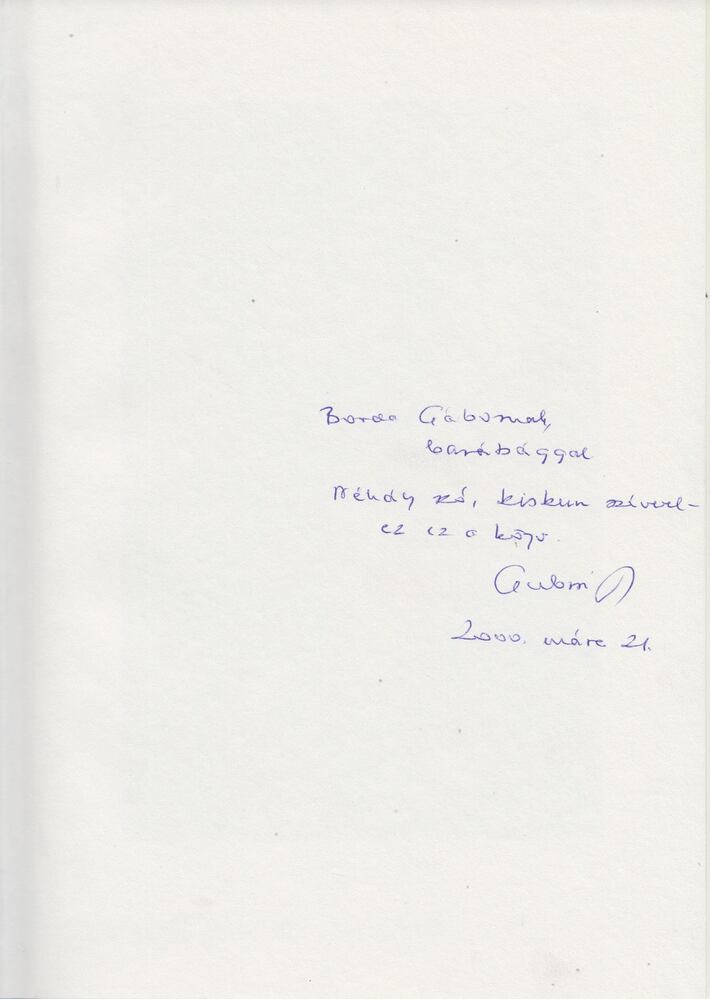 Borda Gábornak,
barátsággal
Néhány szó, kiskun szívvel –
ez ez a könyv.
2000. márc 21.